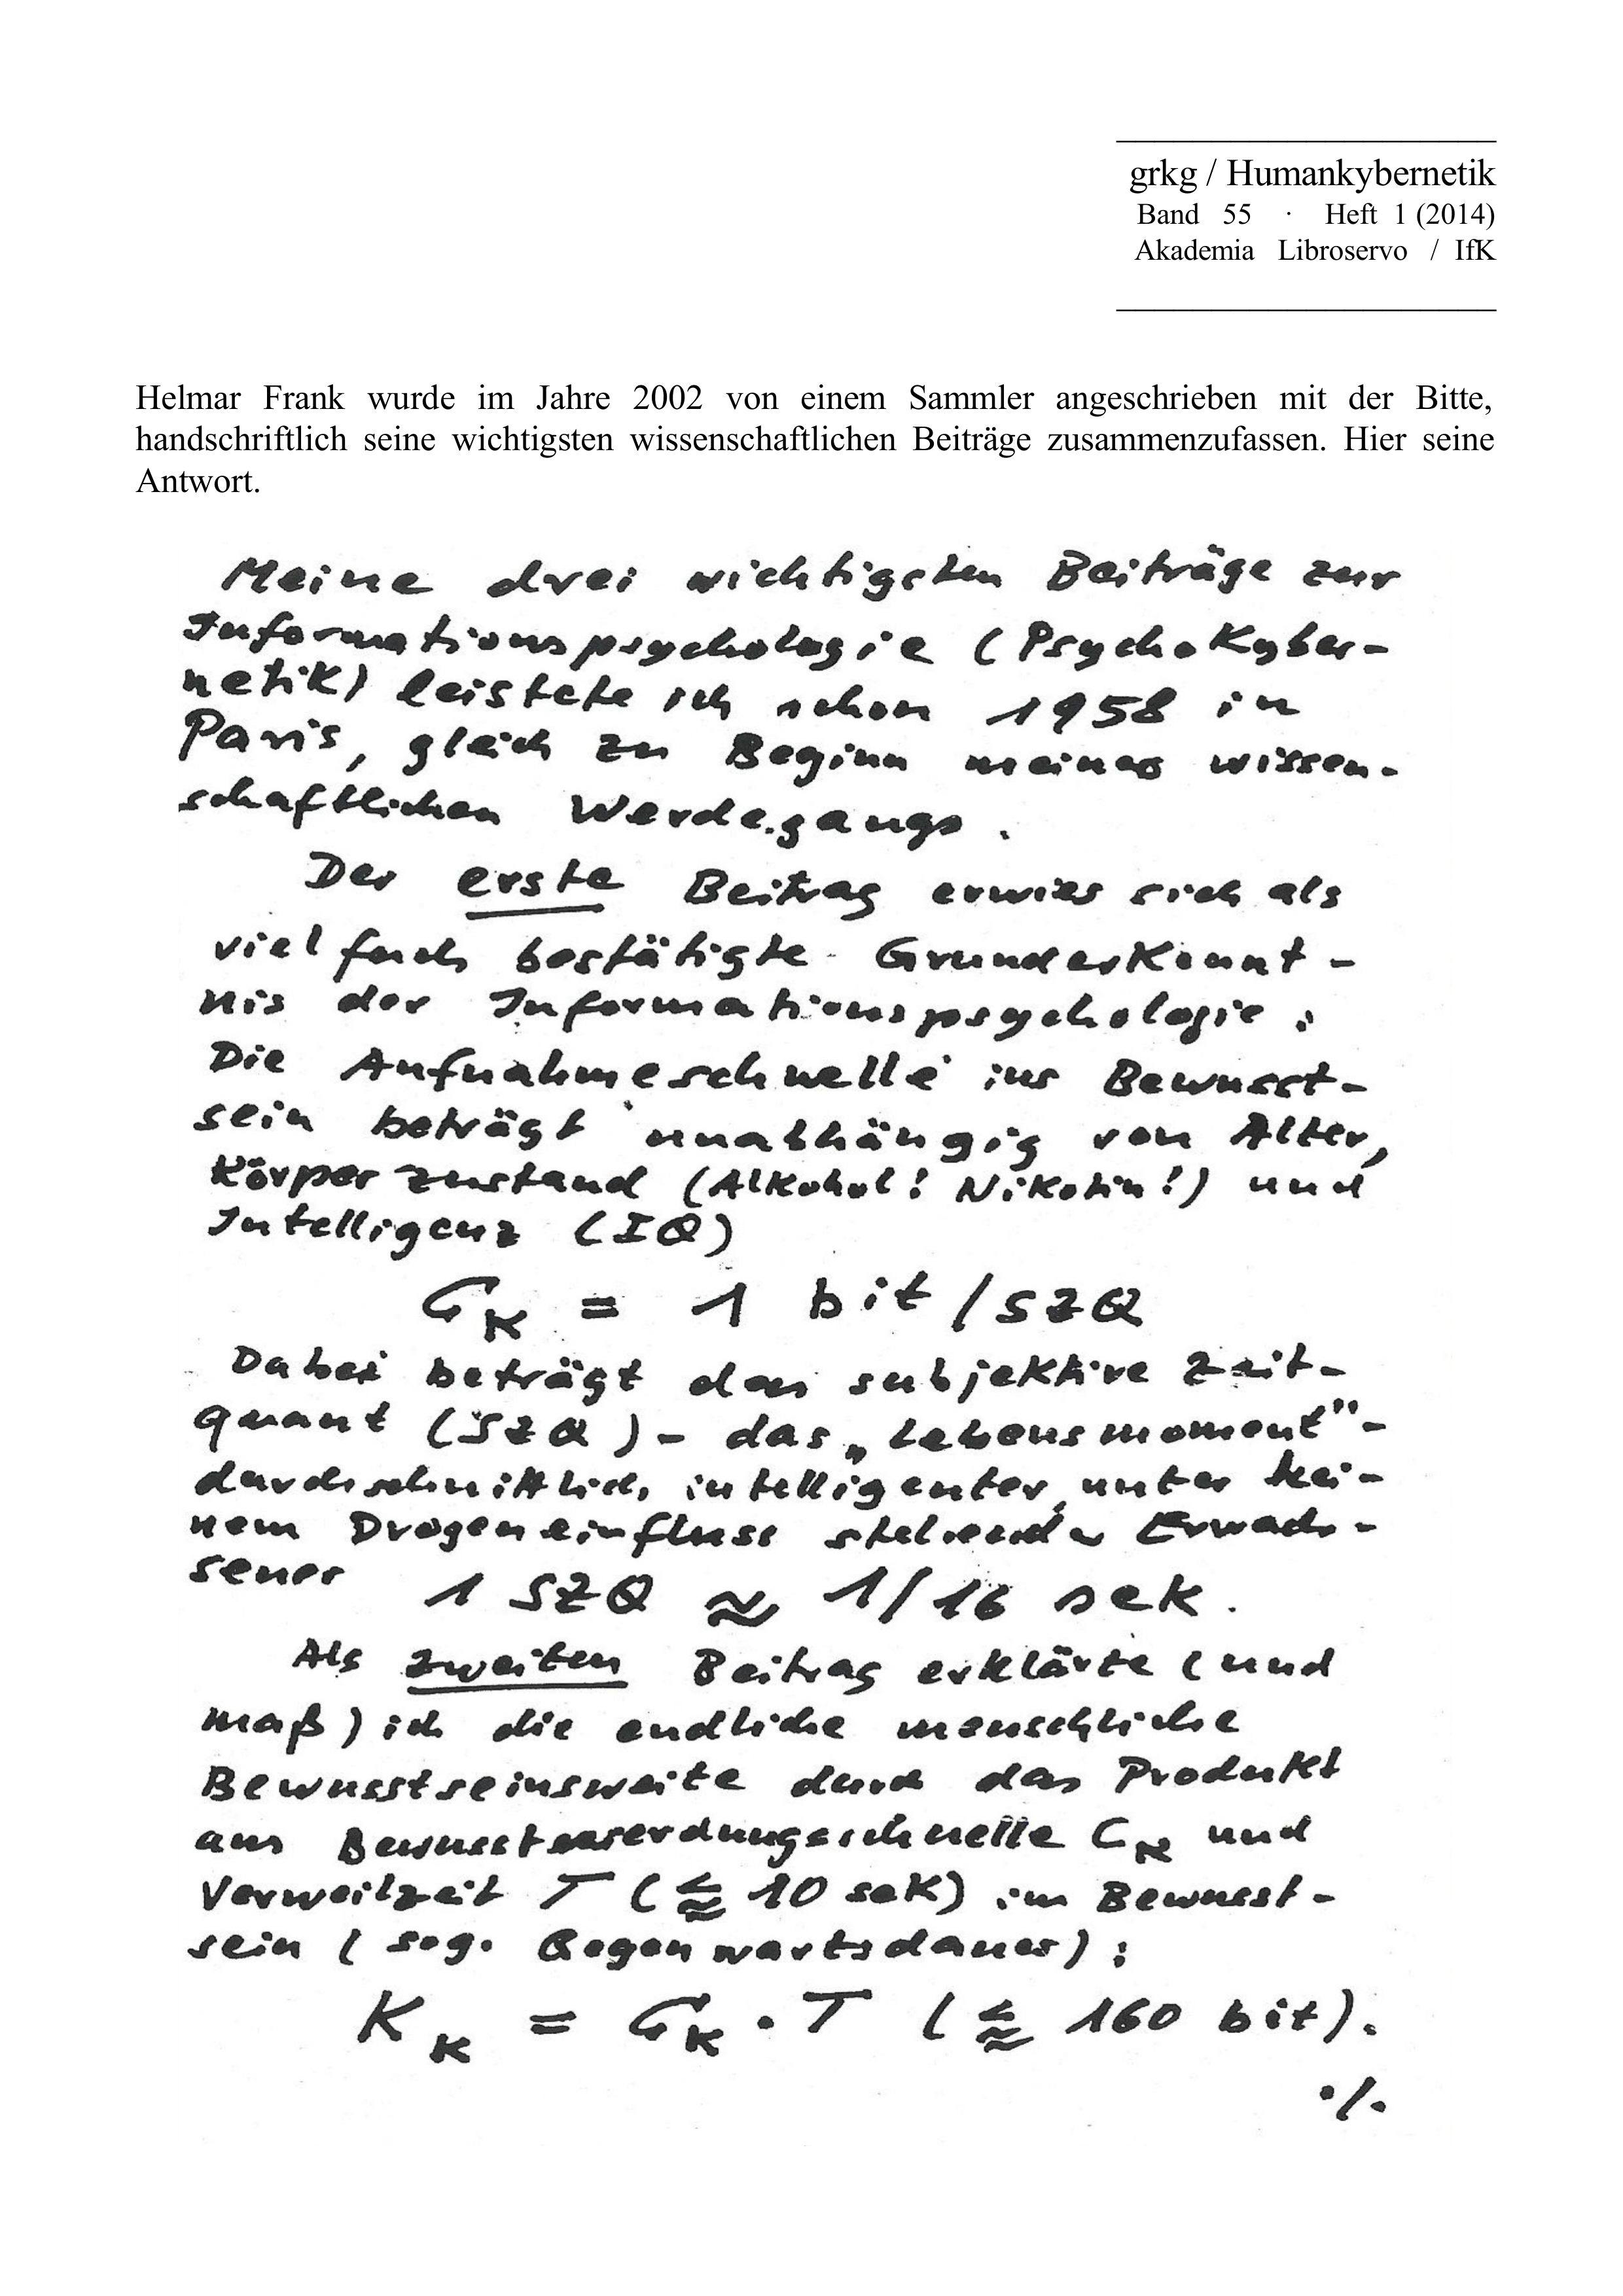 grkg / Humankybernetik
Band 55 · Heft 1 (2014)
Akademia Libroservo / IfK
Helmar Frank wurde im Jahre 2002 von einem Sammler angeschrieben mit der Bitte,
handschriftlich seine wichtigsten wissenschaftlichen Beiträge zusammenzufassen. Hier seine
Antwort.
Meine drei wichtigsten Beiträge zur
Informationspsychologie (Psychokyber-
netik) leistete ich schon 1958 in
Paris, gleich zu Beginn meines wissen-
schaftlichen Werdegangs.
Der erste Beitrag erwies sich als
vielfach bestätigte Grunderkennt-
nis der Informationspsychologie:
Die Aufnahmeschnelle ins Bewusst-
sein beträgt unabhängig von Alter,
Körperzustand (Alkohol! Nikotin!) und
Intelligenz (IQ)
C_K = 1 bit/SZQ
Dabei beträgt das subjektive Zeit-
quant (SZQ) - das „Lebensmoment" -
durchschnittlich intelligenter, unter kei-
nem Drogeneinfluss stehender Erwach-
sener 1 SZQ ≈ 1/16 sek.
Als zweiten Beitrag erklärte (und
maß) ich die endliche menschliche
Bewusstseinsweite durch das Produkt
aus Bewusstwerdungsschnelle C_K und
Verweilzeit T (⪅ 10 sek) im Bewusst-
sein (sog. Gegenwartsdauer):
K_K = C_K · T (⪅ 160 bit).
·/.